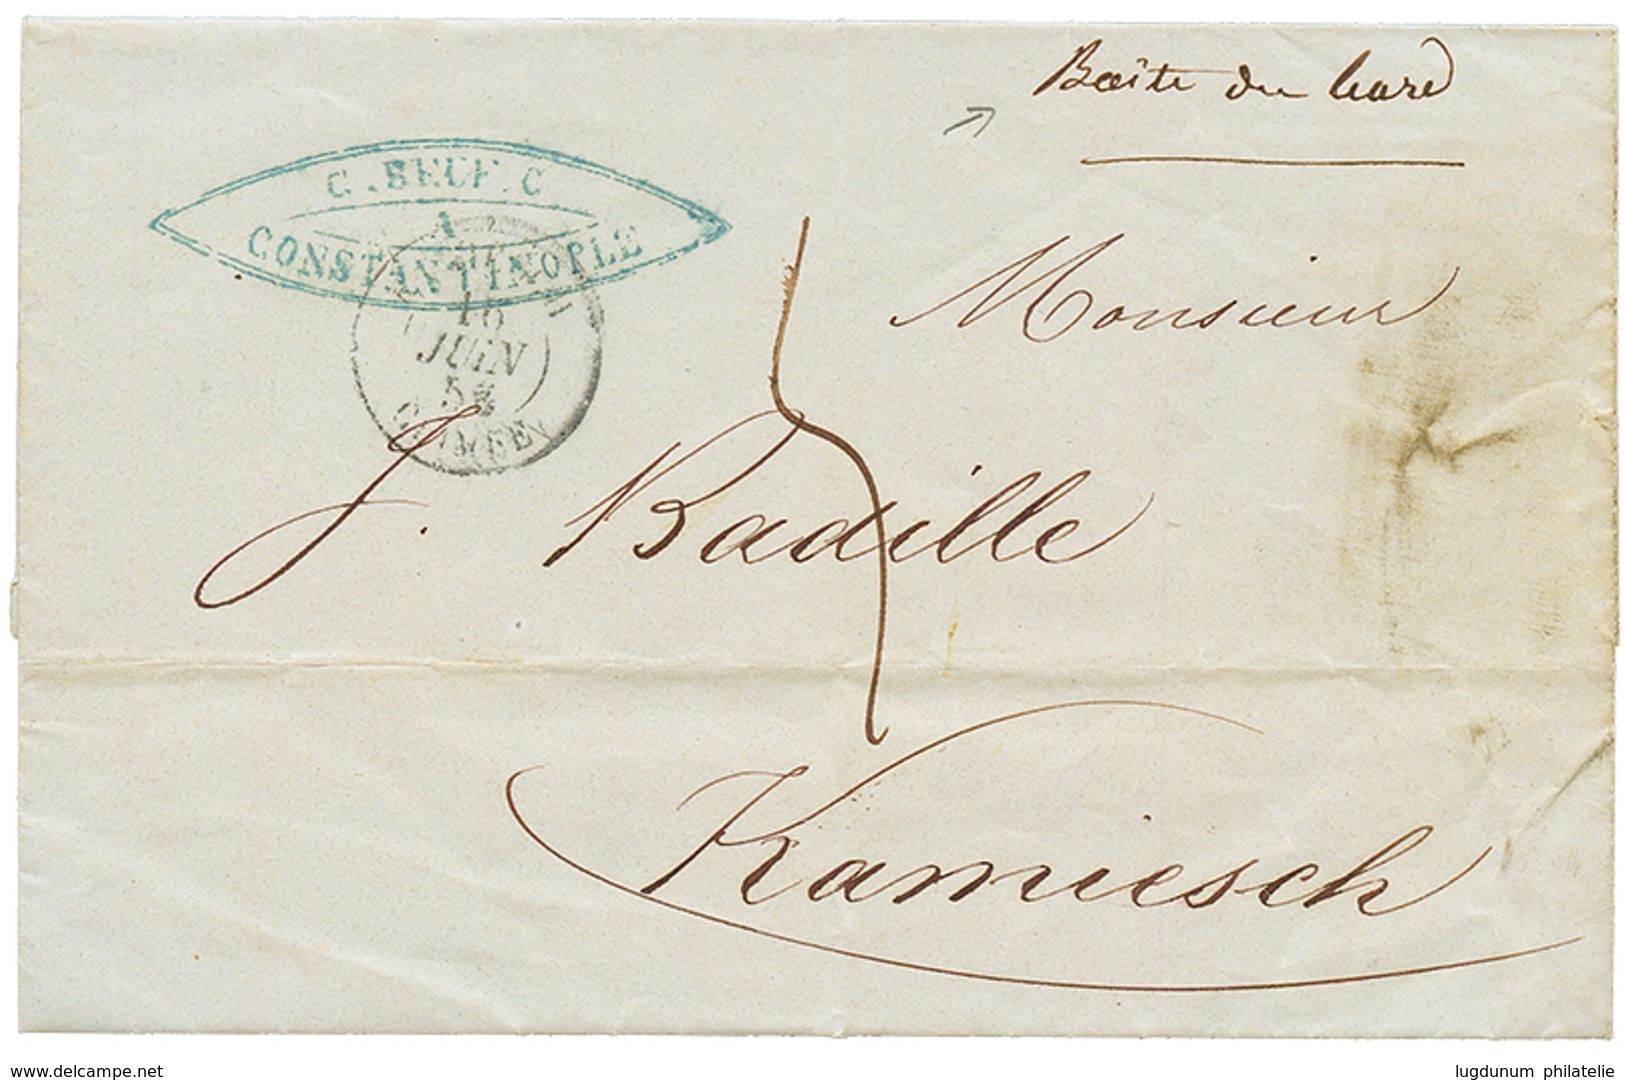 Boite du bord
C. BECF. C
A
CONSTANTINOPLE
16
JUIN
5
CRIMEE
Monsieur
5
J. Badille
Kamiesch
www.delcampe.net
lugdunum philatelie